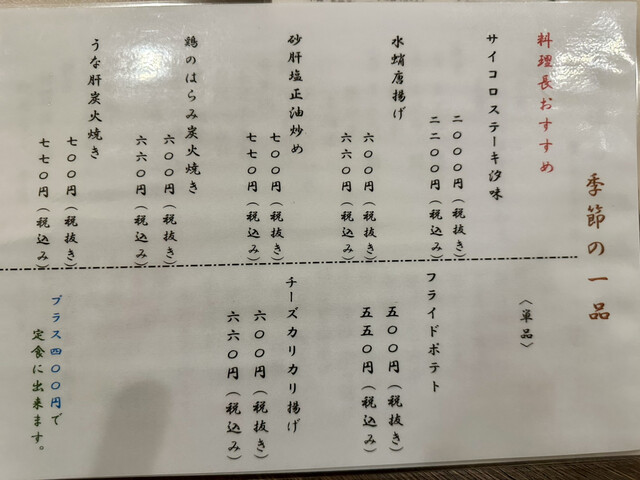 季節の一品
料理長おすすめ
サイコロステーキ汐味
二〇〇〇円(税抜き)
二二〇〇円(税込み)
水蛸唐揚げ
六〇〇円(税抜き)
六六〇円(税込み)
砂肝塩正油炒め
七〇〇円(税抜き)
七七〇円(税込み)
鶏のはらみ炭火焼き
六〇〇円(税抜き)
六六〇円(税込み)
うな肝炭火焼き
七〇〇円(税抜き)
七七〇円(税込み)
〈単品〉
フライドポテト
五〇〇円(税抜き)
五五〇円(税込み)
チーズカリカリ揚げ
六〇〇円(税抜き)
六六〇円(税込み)
プラス四〇〇円で
定食に出来ます。